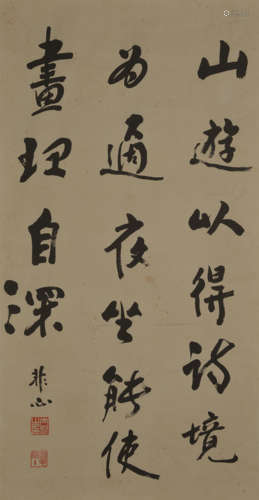 山遊以得詩境
為適夜坐能使
畫理自深